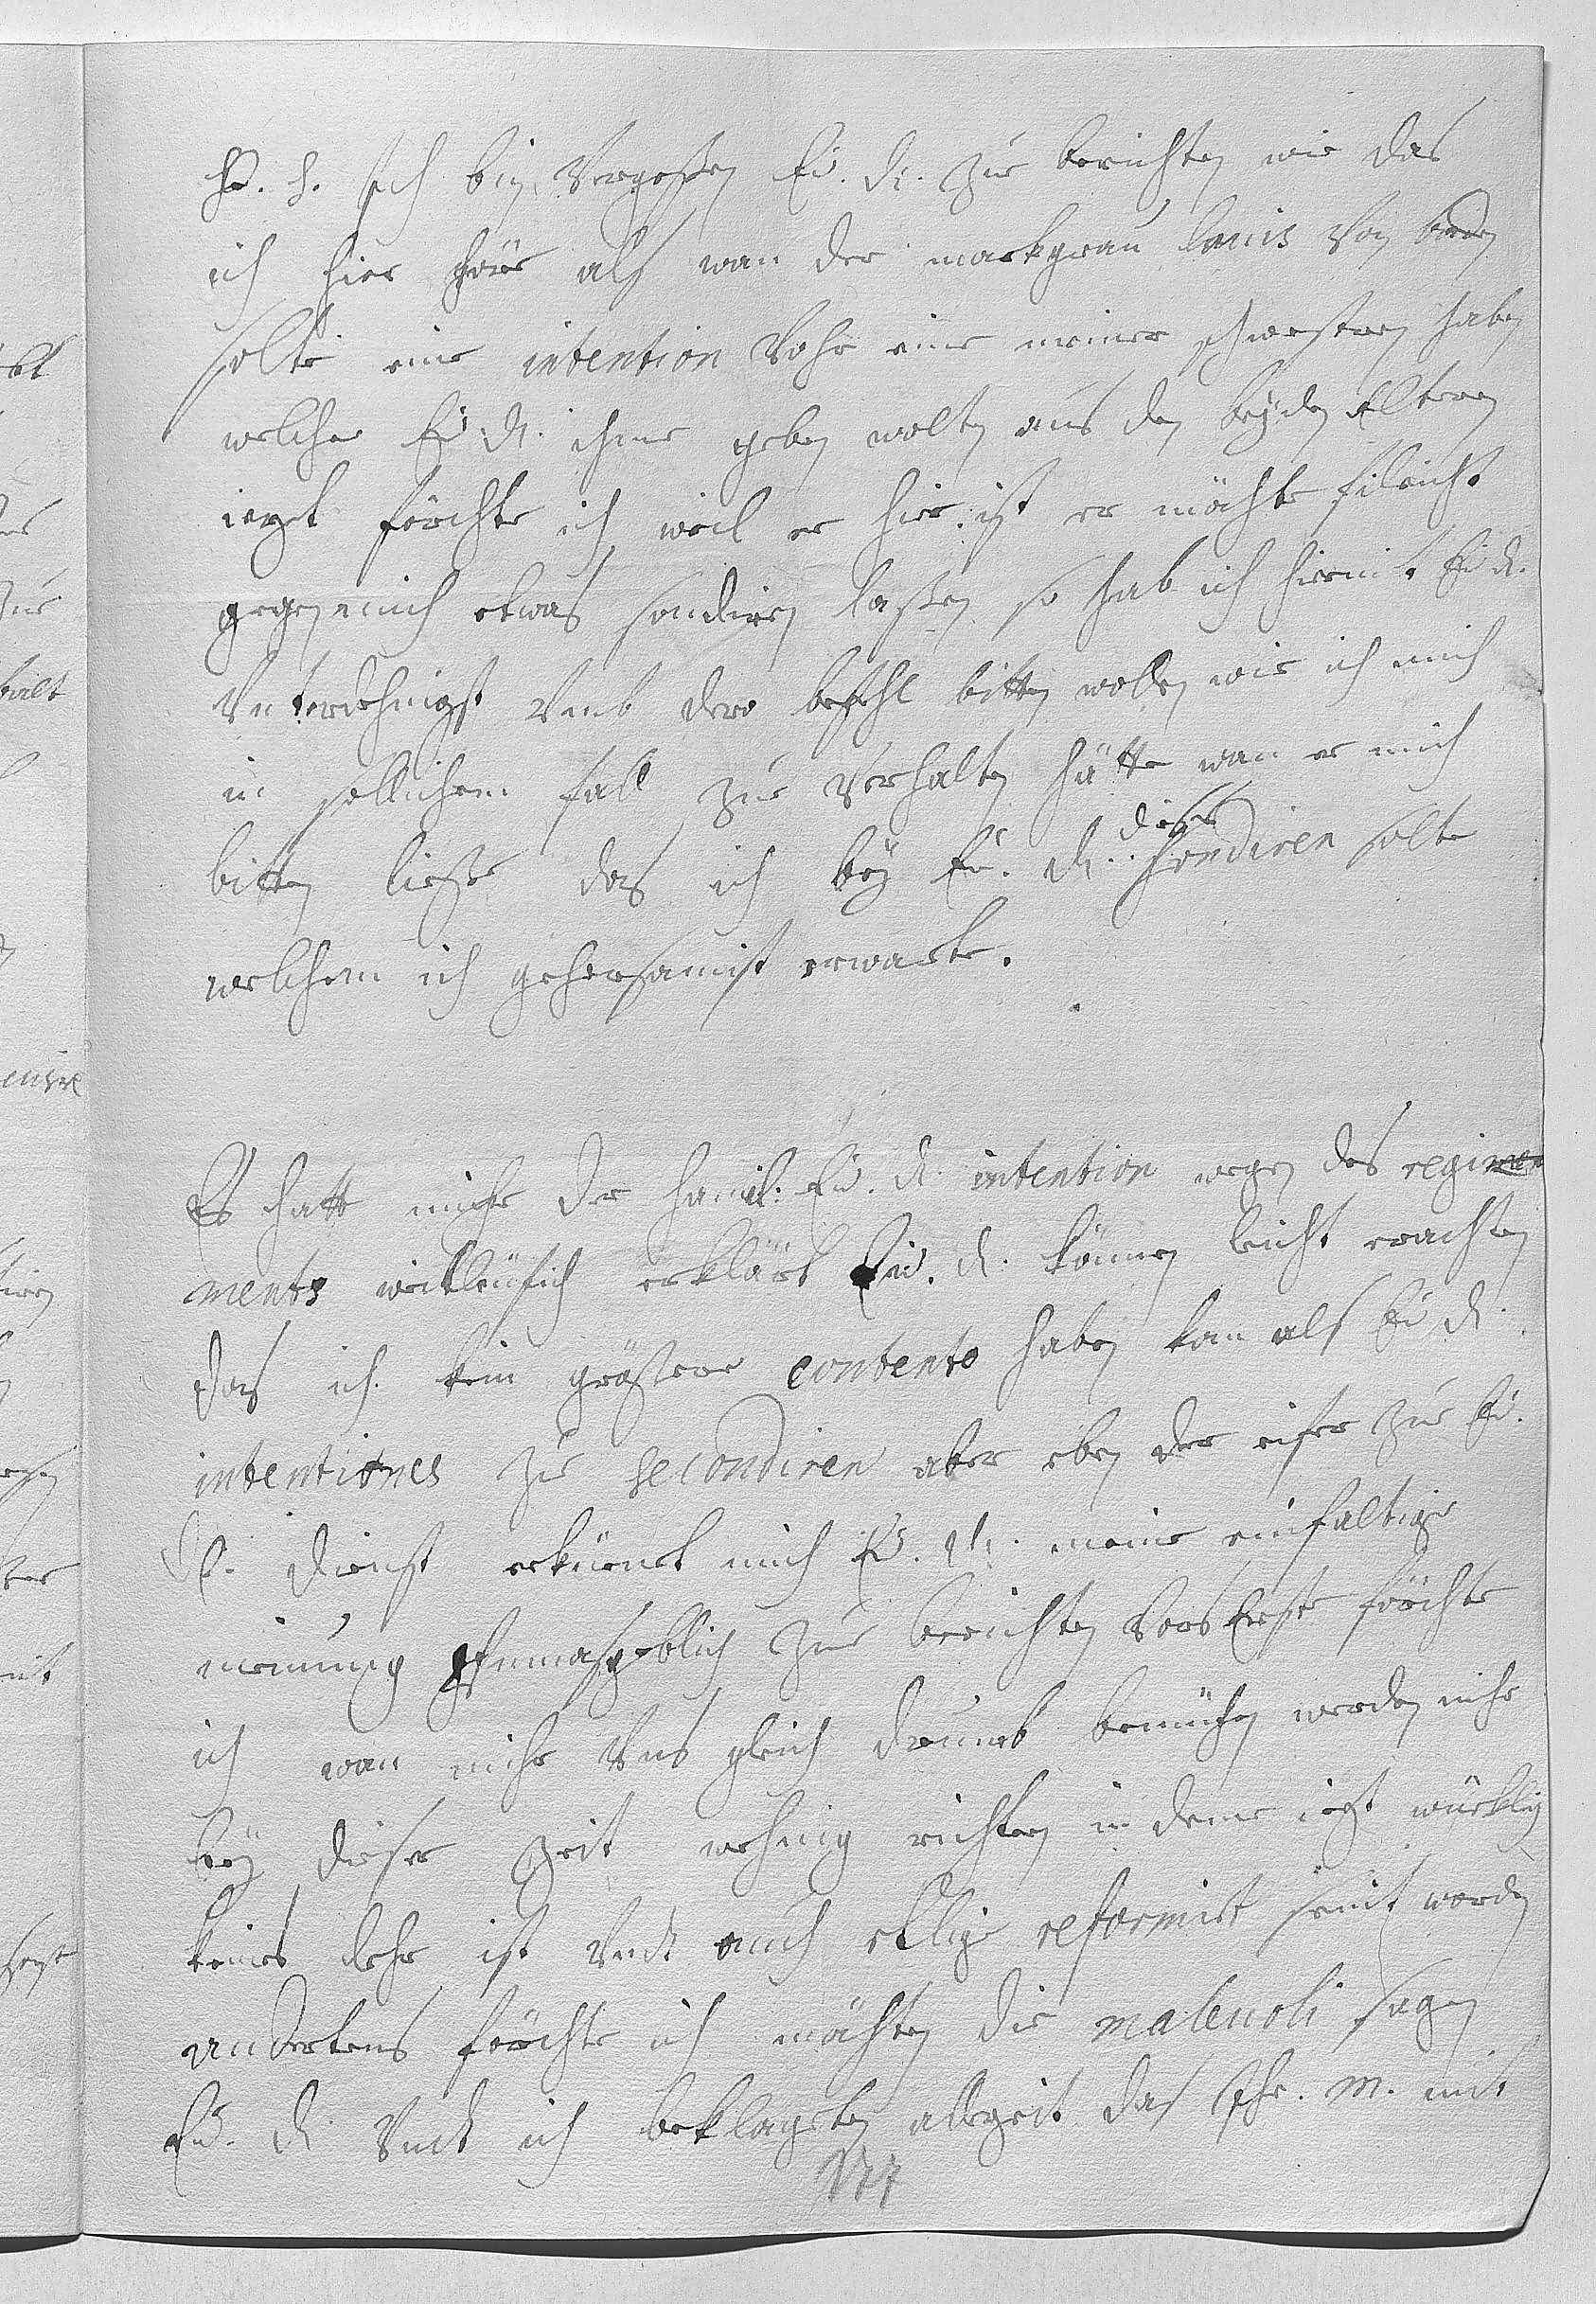 P. S. Ich bin vergessen Eu. Dl. zu berichten wie das
ich hier höre als wan der markgrau louis von baden
solte eine intention vohr eine meiner schwestern haben
welche Eu Dl. ihme geben wolten aus den beyden Eltern
iezt förchte ich weil er hier ist er möchte fileicht
gegen mich etwas sondiren lassen so hab ich hiemit Eu dl.
Vnterdehnigst vmb dero befehl bitten wollen wie ich mich
in sollichem fall zu verhalten hätte wan er mich
bitten liesse das ich bey Eu. dl. diese sondiren solte
welchem ich gehorsamist erwarte.
Es hatt mihr der Eu. dl. intention wegen des regimen
ments weitleufich erklärt Eu. dl. können leicht erachten
das ich kein grössere contento haben kan als Eu dl.
intentiones zu secondiren aber eben der eifer zu Eu.
dl. dienst erkünet mich Eu. dl. meine einfaltige
meinung ohnmasgeblich zu berichten vors Erste förchte
ich wan mihr vns gleich drumb bemühen werden mihr
bey dieser Zeit wehnig richten in deme iezt würklig
keines lehr ist vndt auch etlige reformirt seint worden
andertens förchte ich möchten die maleuoli sagen
Eu. dl vndt ich beklagten allzeit das Ihr. M. mit
177